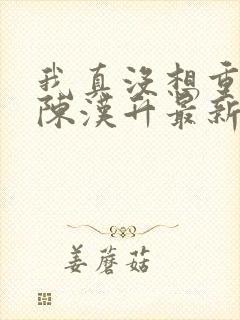 我真没想重
陈漢升最新
姜蘑菇